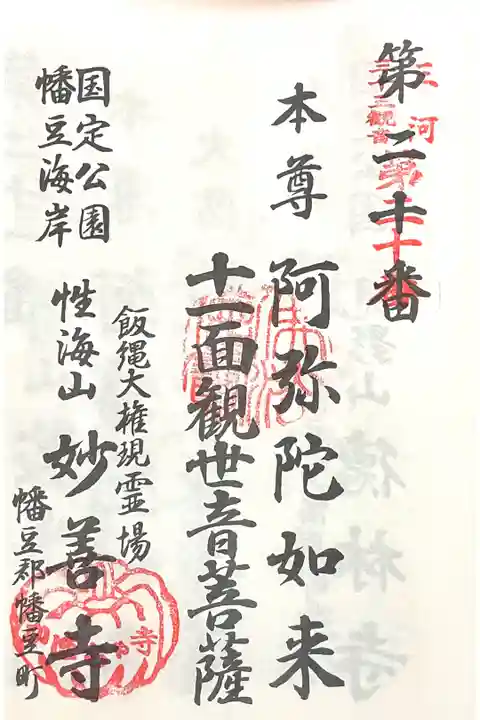 第二十番
三河
三十三觀音
第二十
本尊 阿弥陀如来
十一面觀世音菩薩
飯縄大権現霊場
国定公園
幡豆海岸
性海山 妙善寺
幡豆郡幡豆町